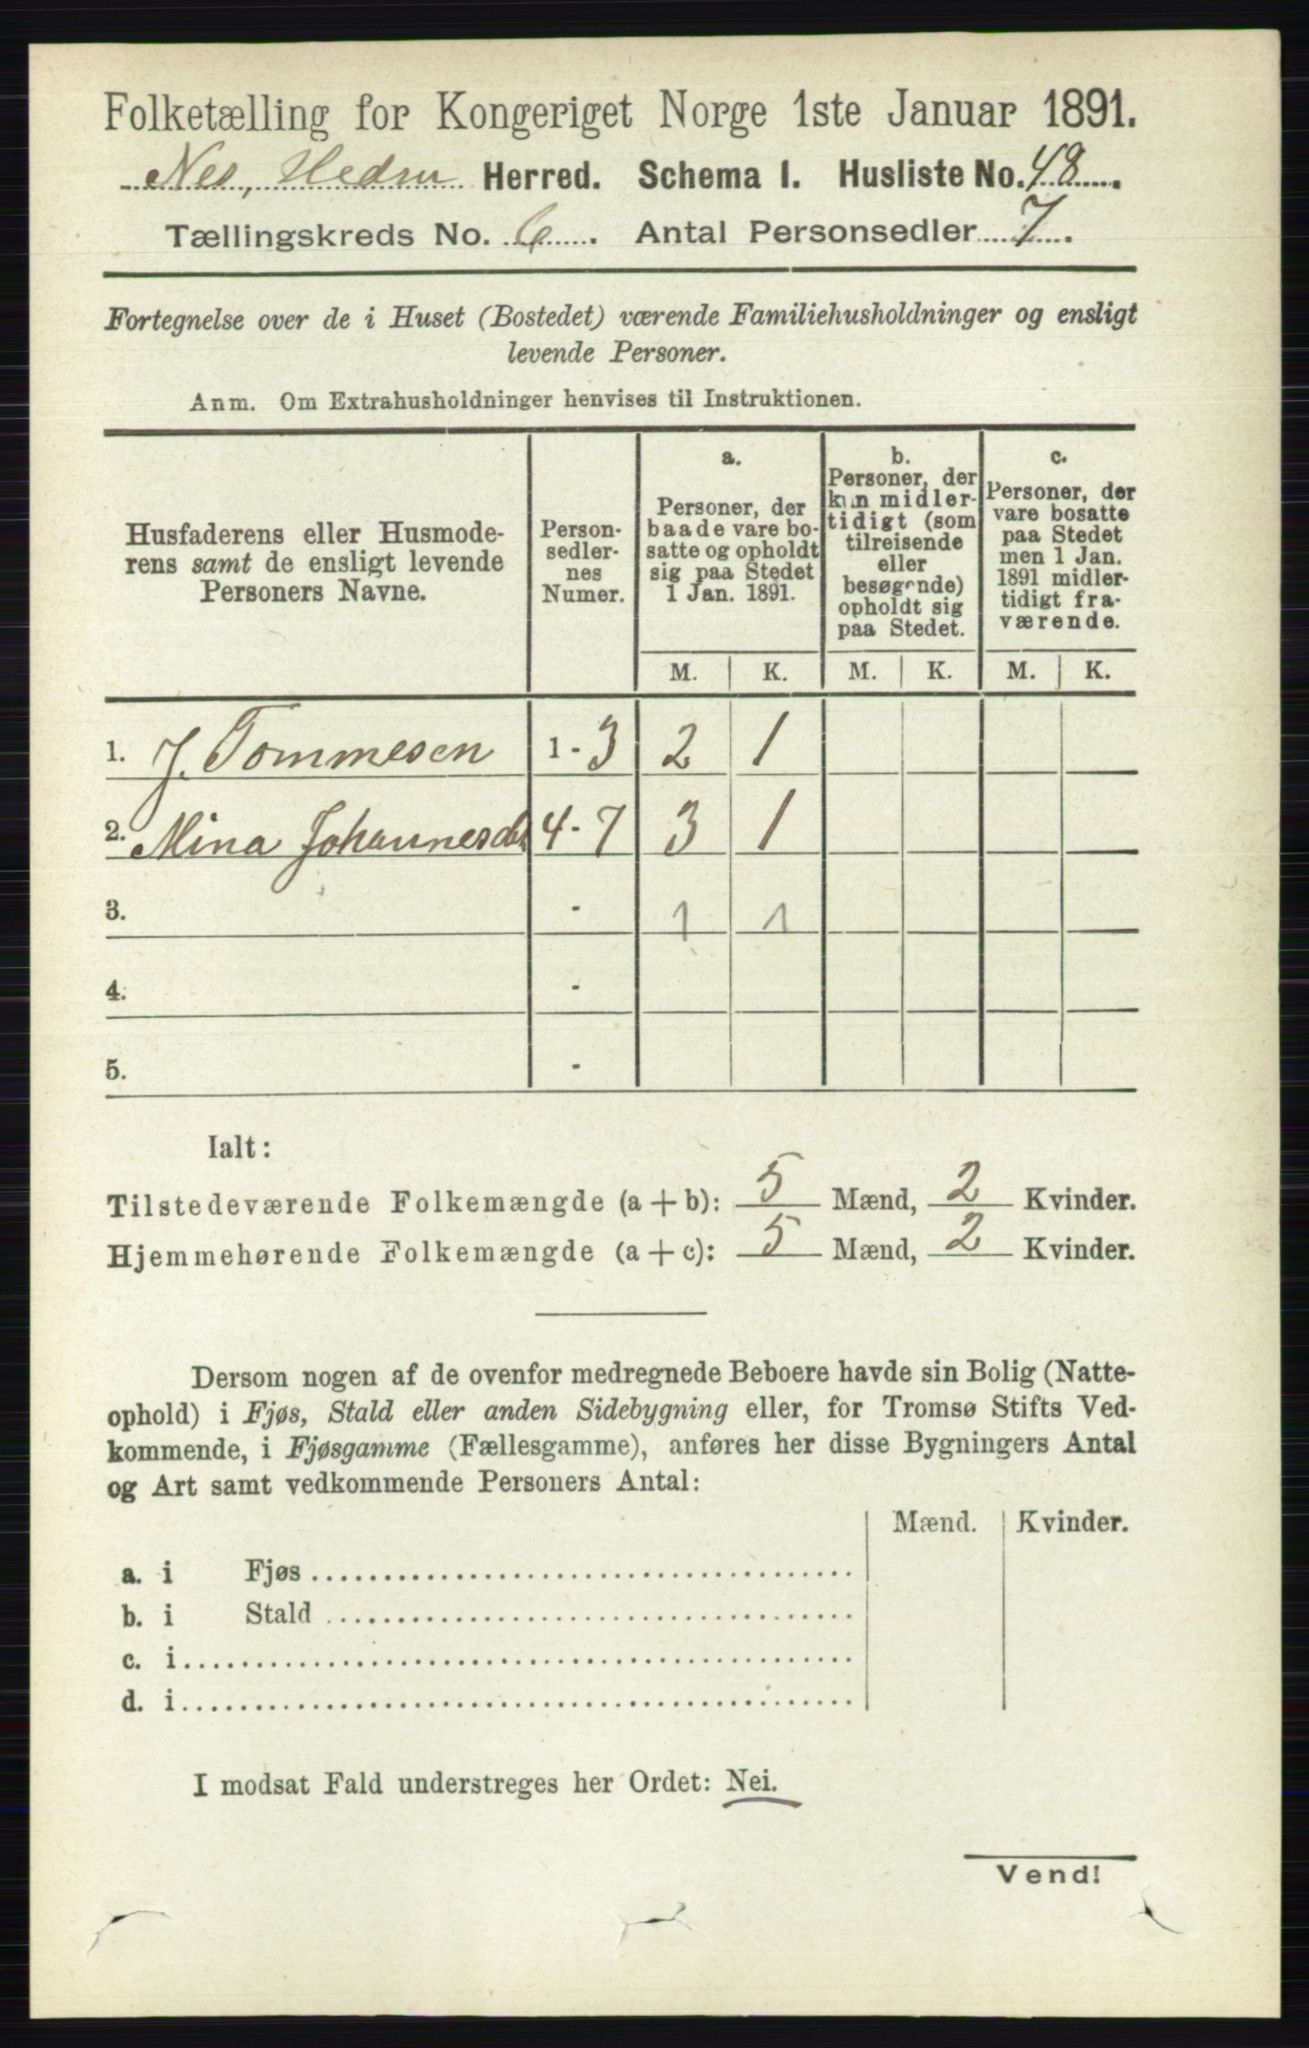 Folketælling for Kongeriget Norge 1ste Januar 1891.
Nes, Hedm Herred. Schema I. Husliste No. 48.
Tællingskreds No. 6. Antal Personsedler 7.
Fortegnelse over de i Huset (Bostedet) værende Familiehusholdninger og ensligt
levende Personer.
Anm. Om Extrahusholdninger henvises til Instruktionen.
Husfaderens eller Husmode-
rens samt de ensligt levende
Personers Navne.
Person-
sedler-
nes
Numer.
a.
Personer, der
baade vare bo-
satte og opholdt
sig paa Stedet
1 Jan. 1891.
b.
Personer, der
kun midler-
tidigt (som
tilreisende
eller
besøgende)
opholdt sig
paa Stedet.
c.
Personer, der
vare bosatte
paa Stedet
men 1 Jan.
1891 midler-
tidigt fra-
værende.
M. K. M. K. M. K.
1. J. Tommesen 1 - 3 2 1
2. Mina Johannesdt 4 - 7 3 1
3. - 1 1
4. -
5. -
Ialt:
Tilstedeværende Folkemængde (a + b): 5 Mænd, 2 Kvinder.
Hjemmehørende Folkemængde (a + c): 5 Mænd, 2 Kvinder.
Dersom nogen af de ovenfor medregnede Beboere havde sin Bolig (Natte-
ophold) i Fjøs, Stald eller anden Sidebygning eller, for Tromsø Stifts Ved-
kommende, i Fjøsgamme (Fællesgamme), anføres her disse Bygningers Antal
og Art samt vedkommende Personers Antal:
Mænd. Kvinder.
a. i Fjøs
b. i Stald
c. i
d. i
I modsat Fald understreges her Ordet: Nei.
Vend!